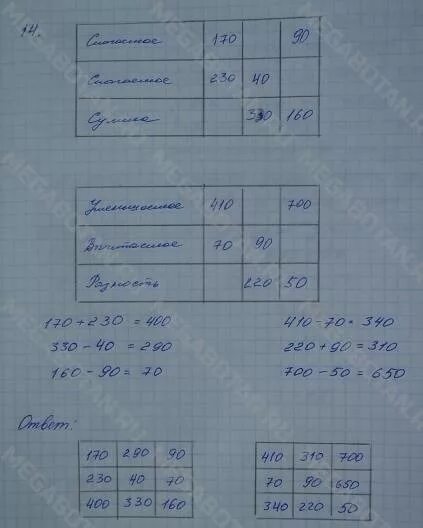 14.
Слагаемое 170 90
Слагаемое 230 40
Сумма 330 160
Уменьшаемое 410 700
Вычитаемое 70 90
Разность 220 50
170 + 230 = 400 410 - 70 = 340
330 - 40 = 290 220 + 90 = 310
160 - 90 = 70 700 - 50 = 650
Ответ:
170 290 90 410 310 700
230 40 70 70 90 650
400 330 160 340 220 50